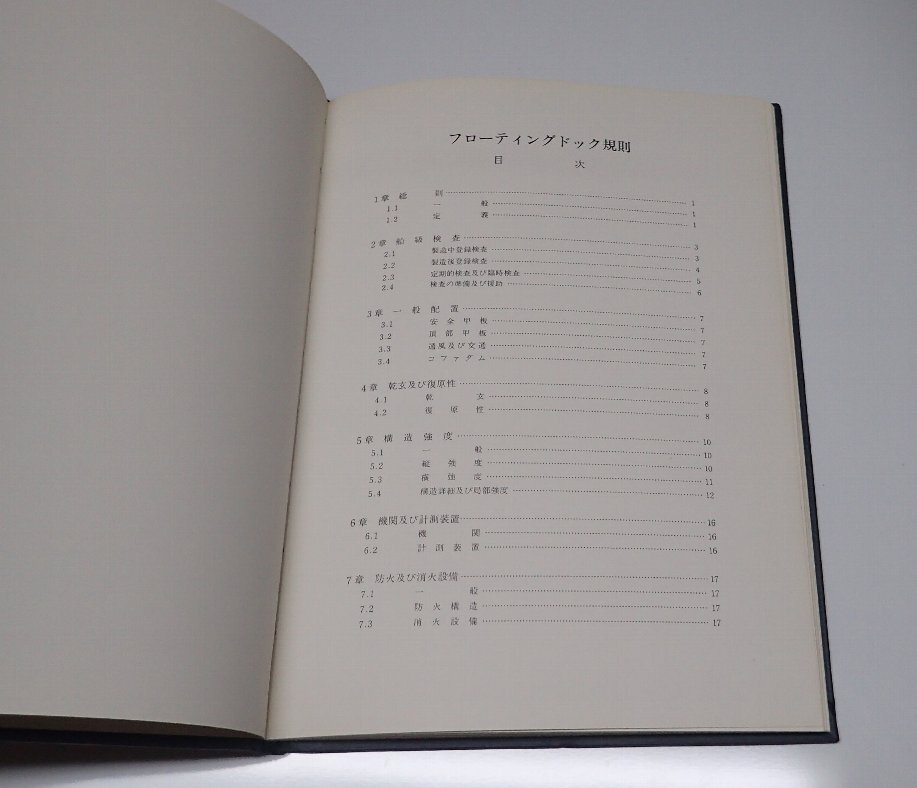 フローティングドック規則
目 次
1章 総 則 1
1.1 一 般 1
1.2 定 義 1
2章 船級検査 3
2.1 製造中登録検査 3
2.2 製造後登録検査 4
2.3 定期的検査及び臨時検査 5
2.4 検査の準備及び援助 6
3章 一般配置 7
3.1 安全甲板 7
3.2 頂部甲板 7
3.3 通風及び交通 7
3.4 コファダム 7
4章 乾玄及び復原性 8
4.1 乾 玄 8
4.2 復原性 8
5章 構造強度 10
5.1 一 般 10
5.2 縦強度 10
5.3 横強度 11
5.4 構造詳細及び局部強度 12
6章 機関及び計測装置 16
6.1 機 関 16
6.2 計測装置 16
7章 防火及び消火設備 17
7.1 一 般 17
7.2 防火構造 17
7.3 消火設備 17